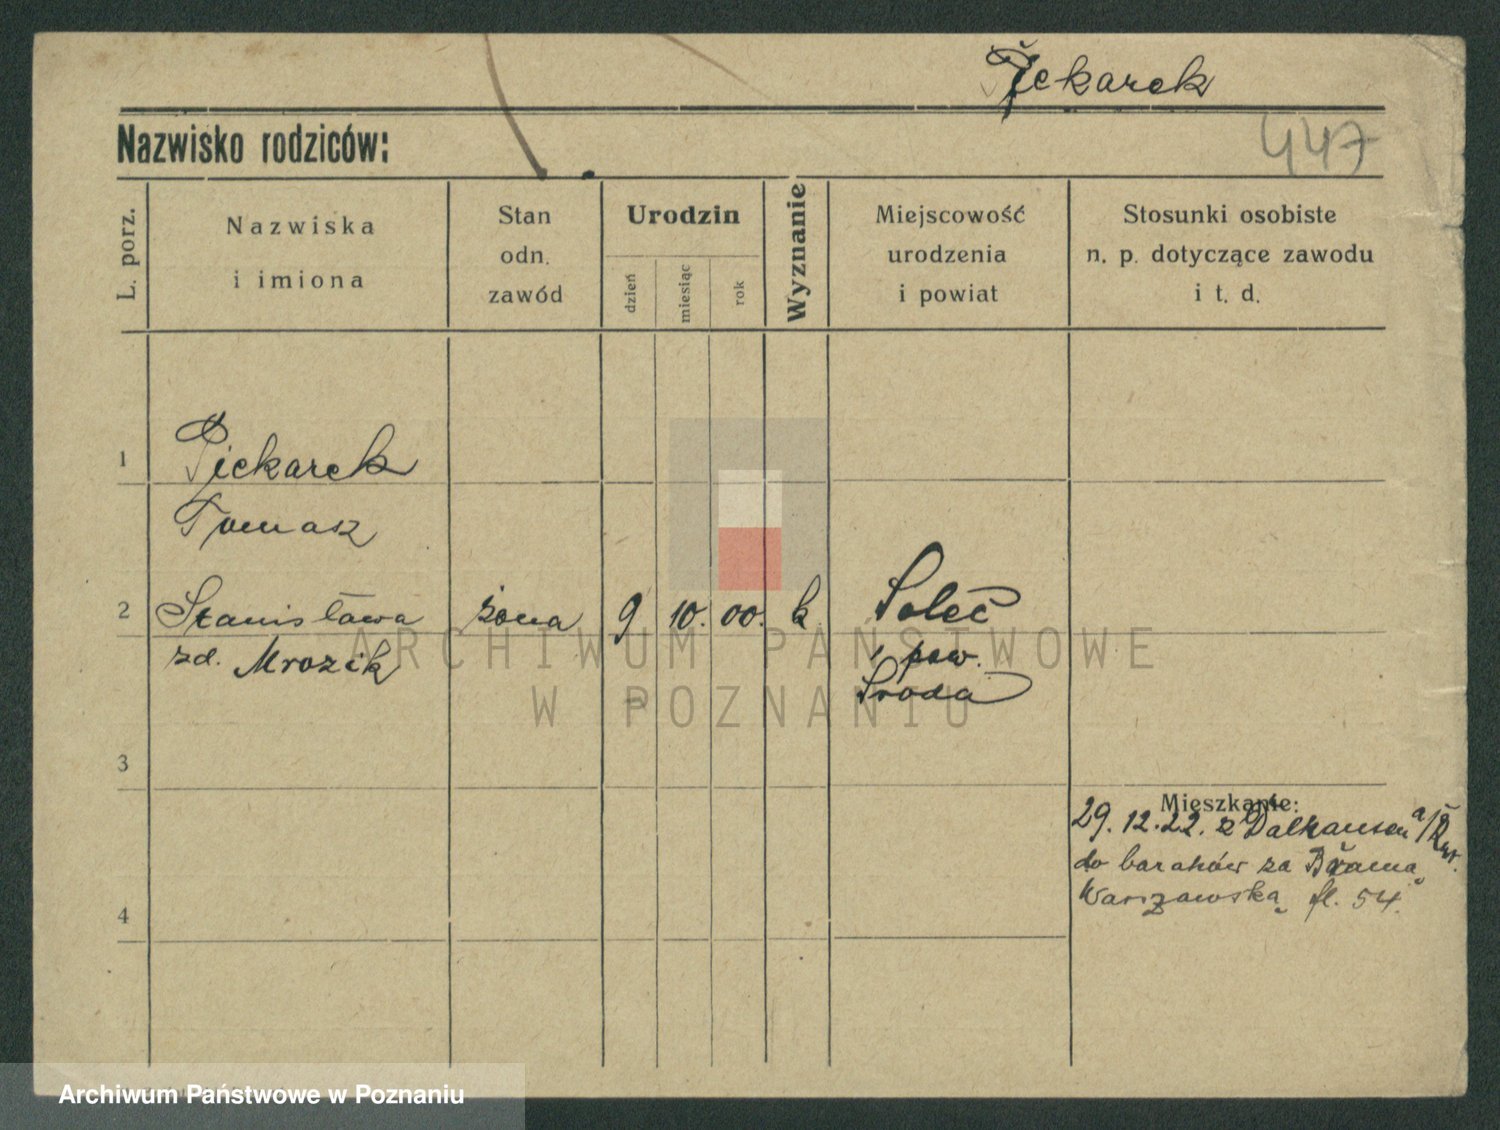 Piekarek
447
Nazwisko rodziców:
L. porz.
Nazwiska
i imiona
Stan
odn.
zawód
Urodzin
dzień
miesiąc
rok
Wyznanie
Miejscowość
urodzenia
i powiat
Stosunki osobiste
n. p. dotyczące zawodu
i t. d.
1
Piekarek
Tomasz
2
Stanisława żona 9 10. 00. k Soleć
zd. Mrozik pow.
Środa
ARCHIWUM PAŃSTWOWE
W POZNANIU
3
Mieszkanie:
29. 12. 22. z Dalhausen a/
do baraków za Bramą
Warszawską fl. 54.
4
Archiwum Państwowe w Poznaniu